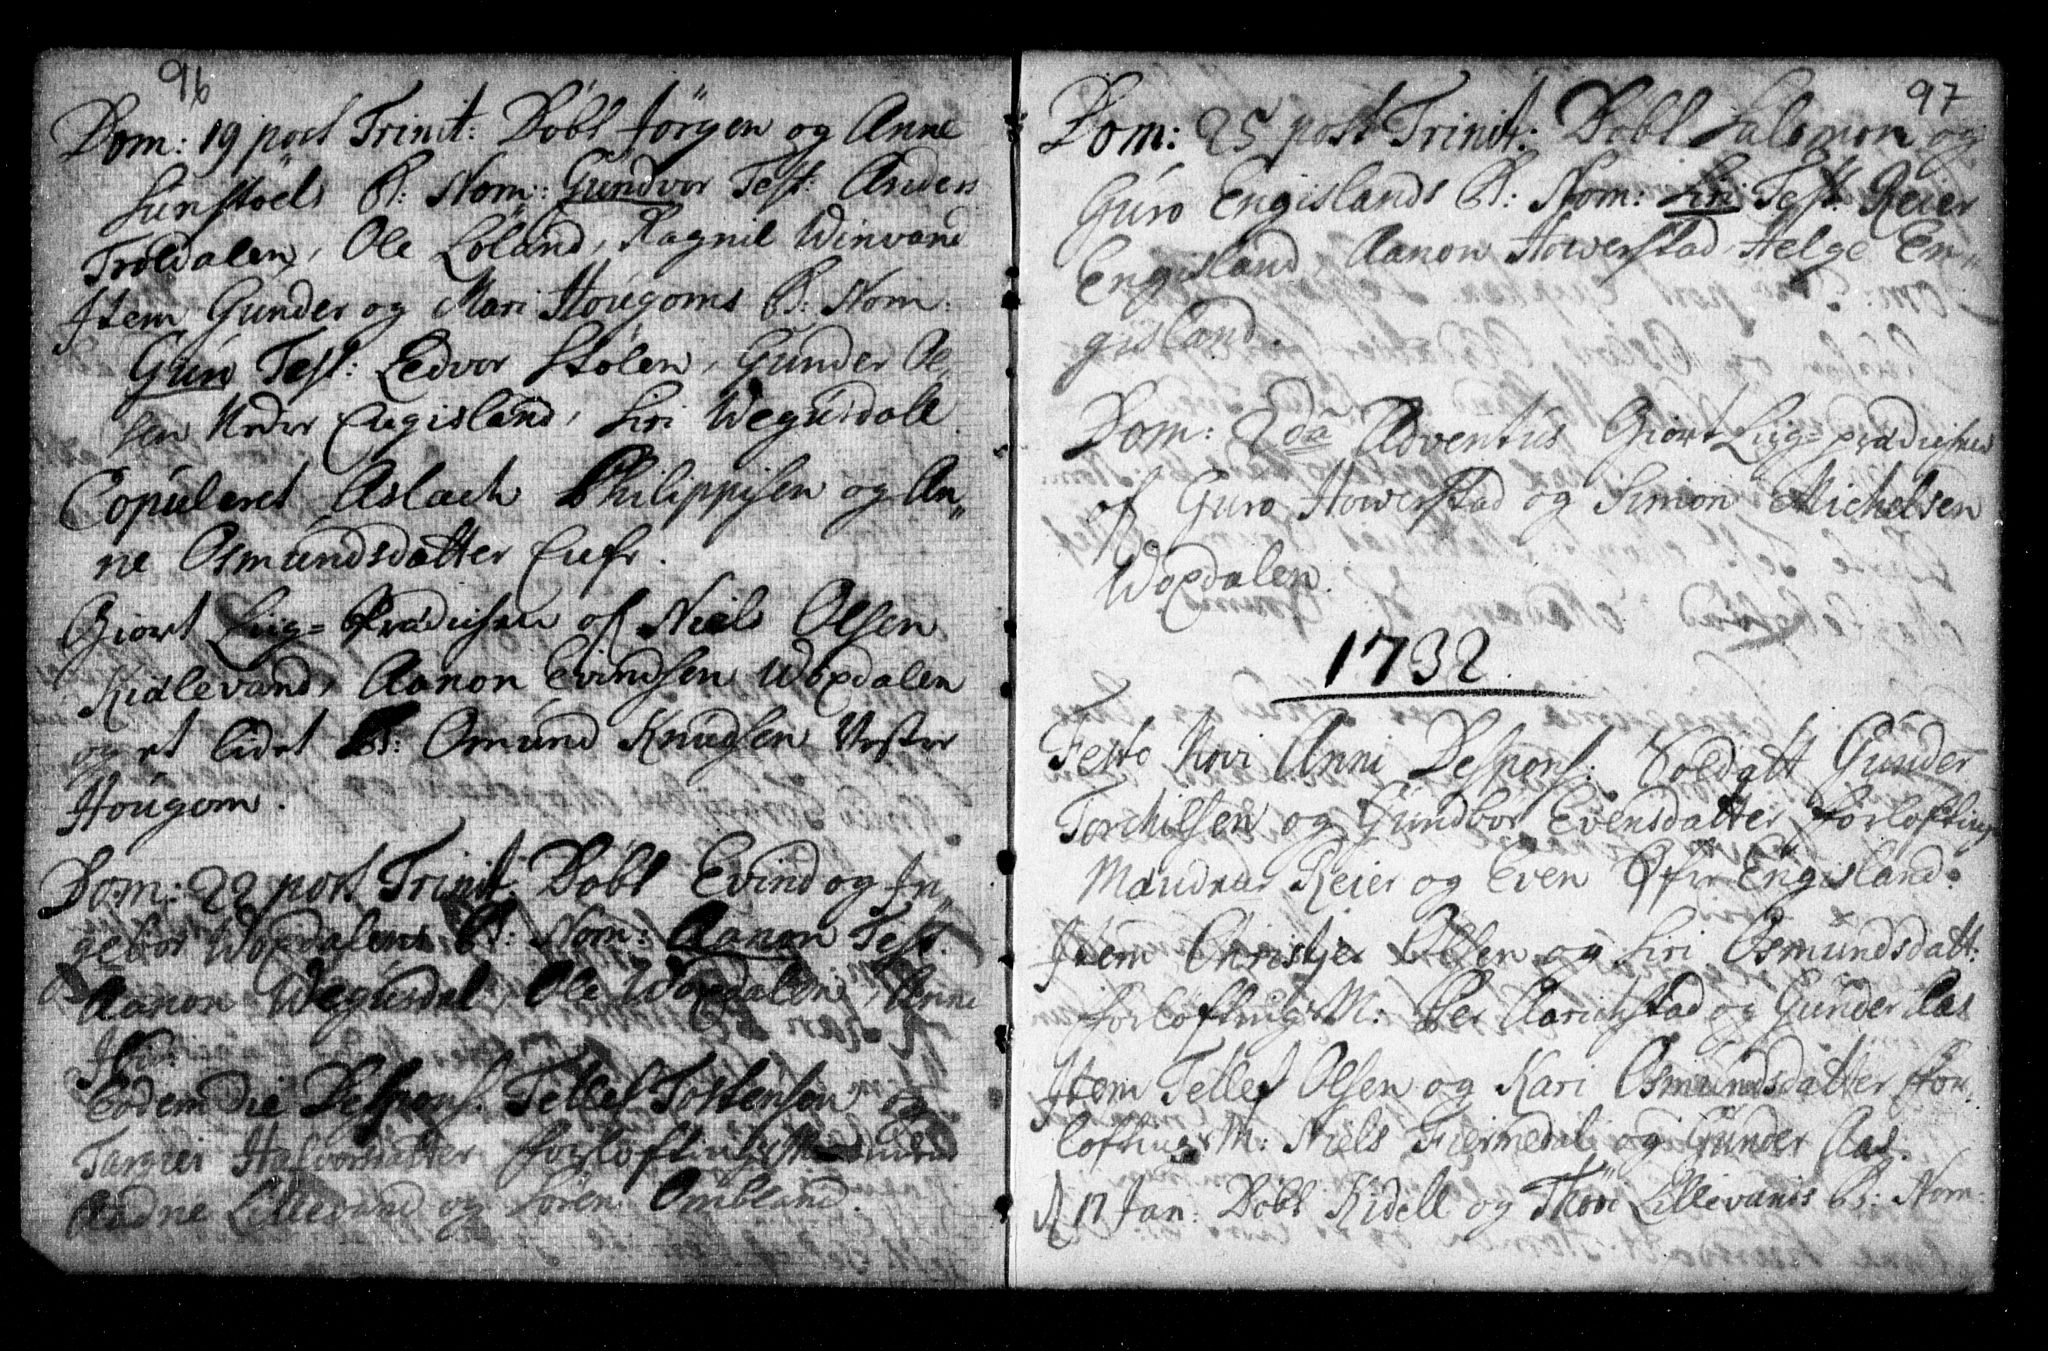 96
Dom: 19 post Trinit: Döbt Jörgen og Anne
Sunstöels B: Nom: Gundvor Test: Anders
Troldalen, Ole Löland, Ragnil Winvand
Item Gunder og Mari Hougoms B: Nom:
Gun Test: Ledvor Stölen, Gunder Ol„
sen Nedre Engisland, Siri Wegusdall
Copuleret Aslach Philippisen og An„
ne Osmundsdatter
Giort Liig= Prædichen of Niels Olsen
Kidlevand, Aanon Evindsen Woxdalen
og et lidet B: Omund Knudsen Vester
Hougom.
Dom: 22 post Trinit: Döbt Evind og In„
gebor Woxdalens B: Nom: Aanon Test:
Aanon Wegusdal, Ole Woxdalen, Anne
Ibid:
Eodem Die Despons. Tellef Tostensen og
Targier Halvorsdatter forloftings M
Aadne Lillevand og Sören Ombland.
97
Dom: 25 post Trinit: Döbt Salomon og
Guro Engislands B: Nom: Siri Test: Reier
Engisland, Aanon Howerstad, Helge En„
gisland.
Dom: 2da Adventus Giort Liig= prædichen
of Guro Howerstad og Simon Michelsen
Woxdalen.
1732
Festo Novi Anni Despons: Soldatt Gunder
Torchilsen og Gundbor Evensdatter forlofting
Reier og Even Öfre Engisland.
Item Christjer Olsen og Siri Osmundsdatt:
forloftings M: Per Aarichstad og Gunder Aas
Item Tellef Olsen og Kari Osmundsdatter for„
loftings M: Niels Fiermedal og Gunder Aas.
d 17 Jan: Döbt Kidell og Thore Lillevands B: Nom: